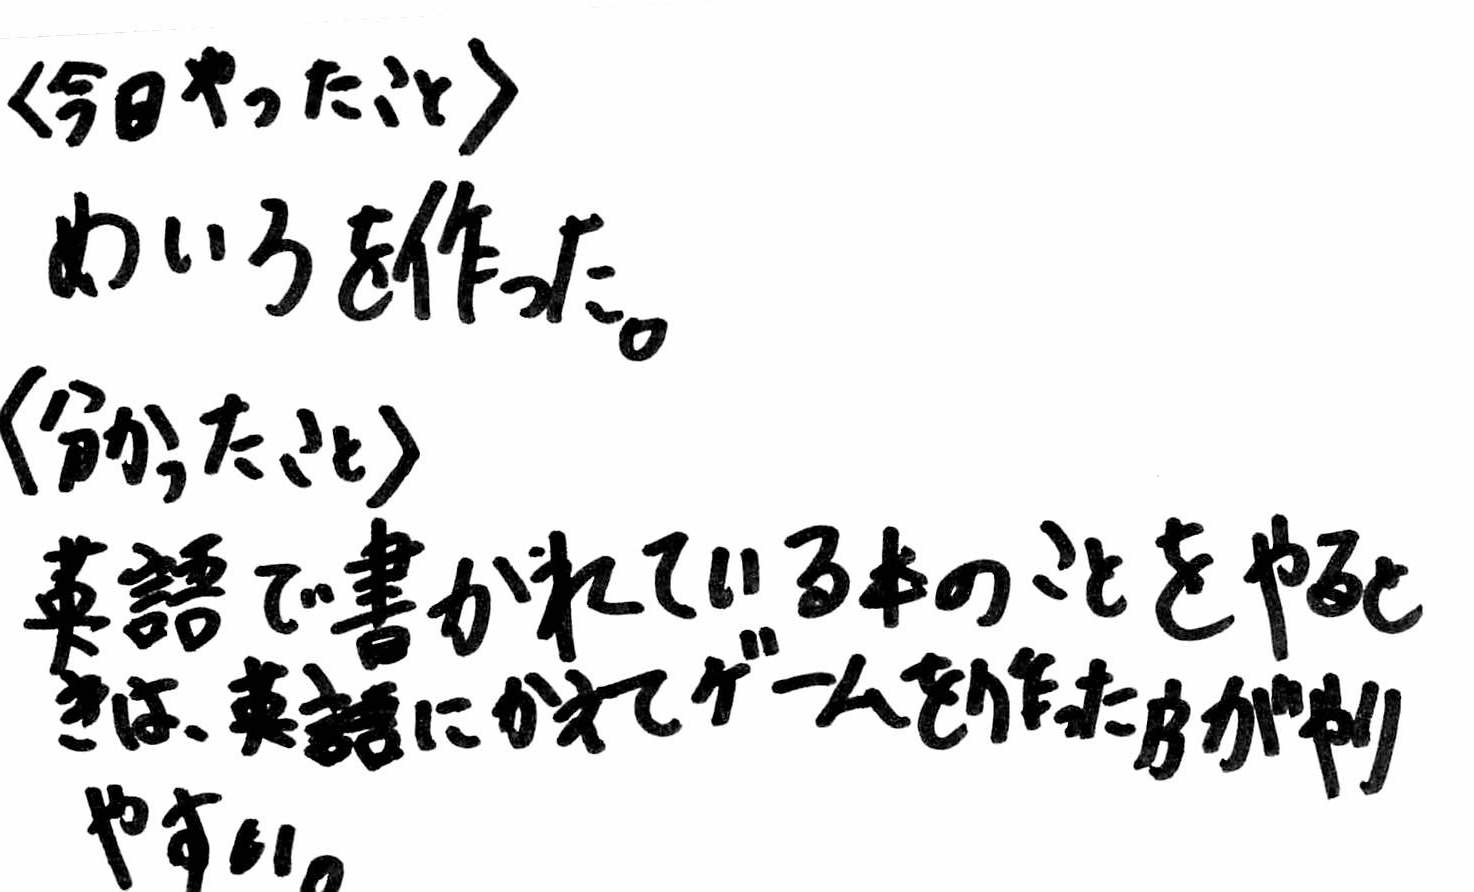 〈今日やったこと〉
めいろを作った。
〈分かったこと〉
英語で書かれている本のことをやると
きは、英語にかえてゲームを作った方がやり
やすい。